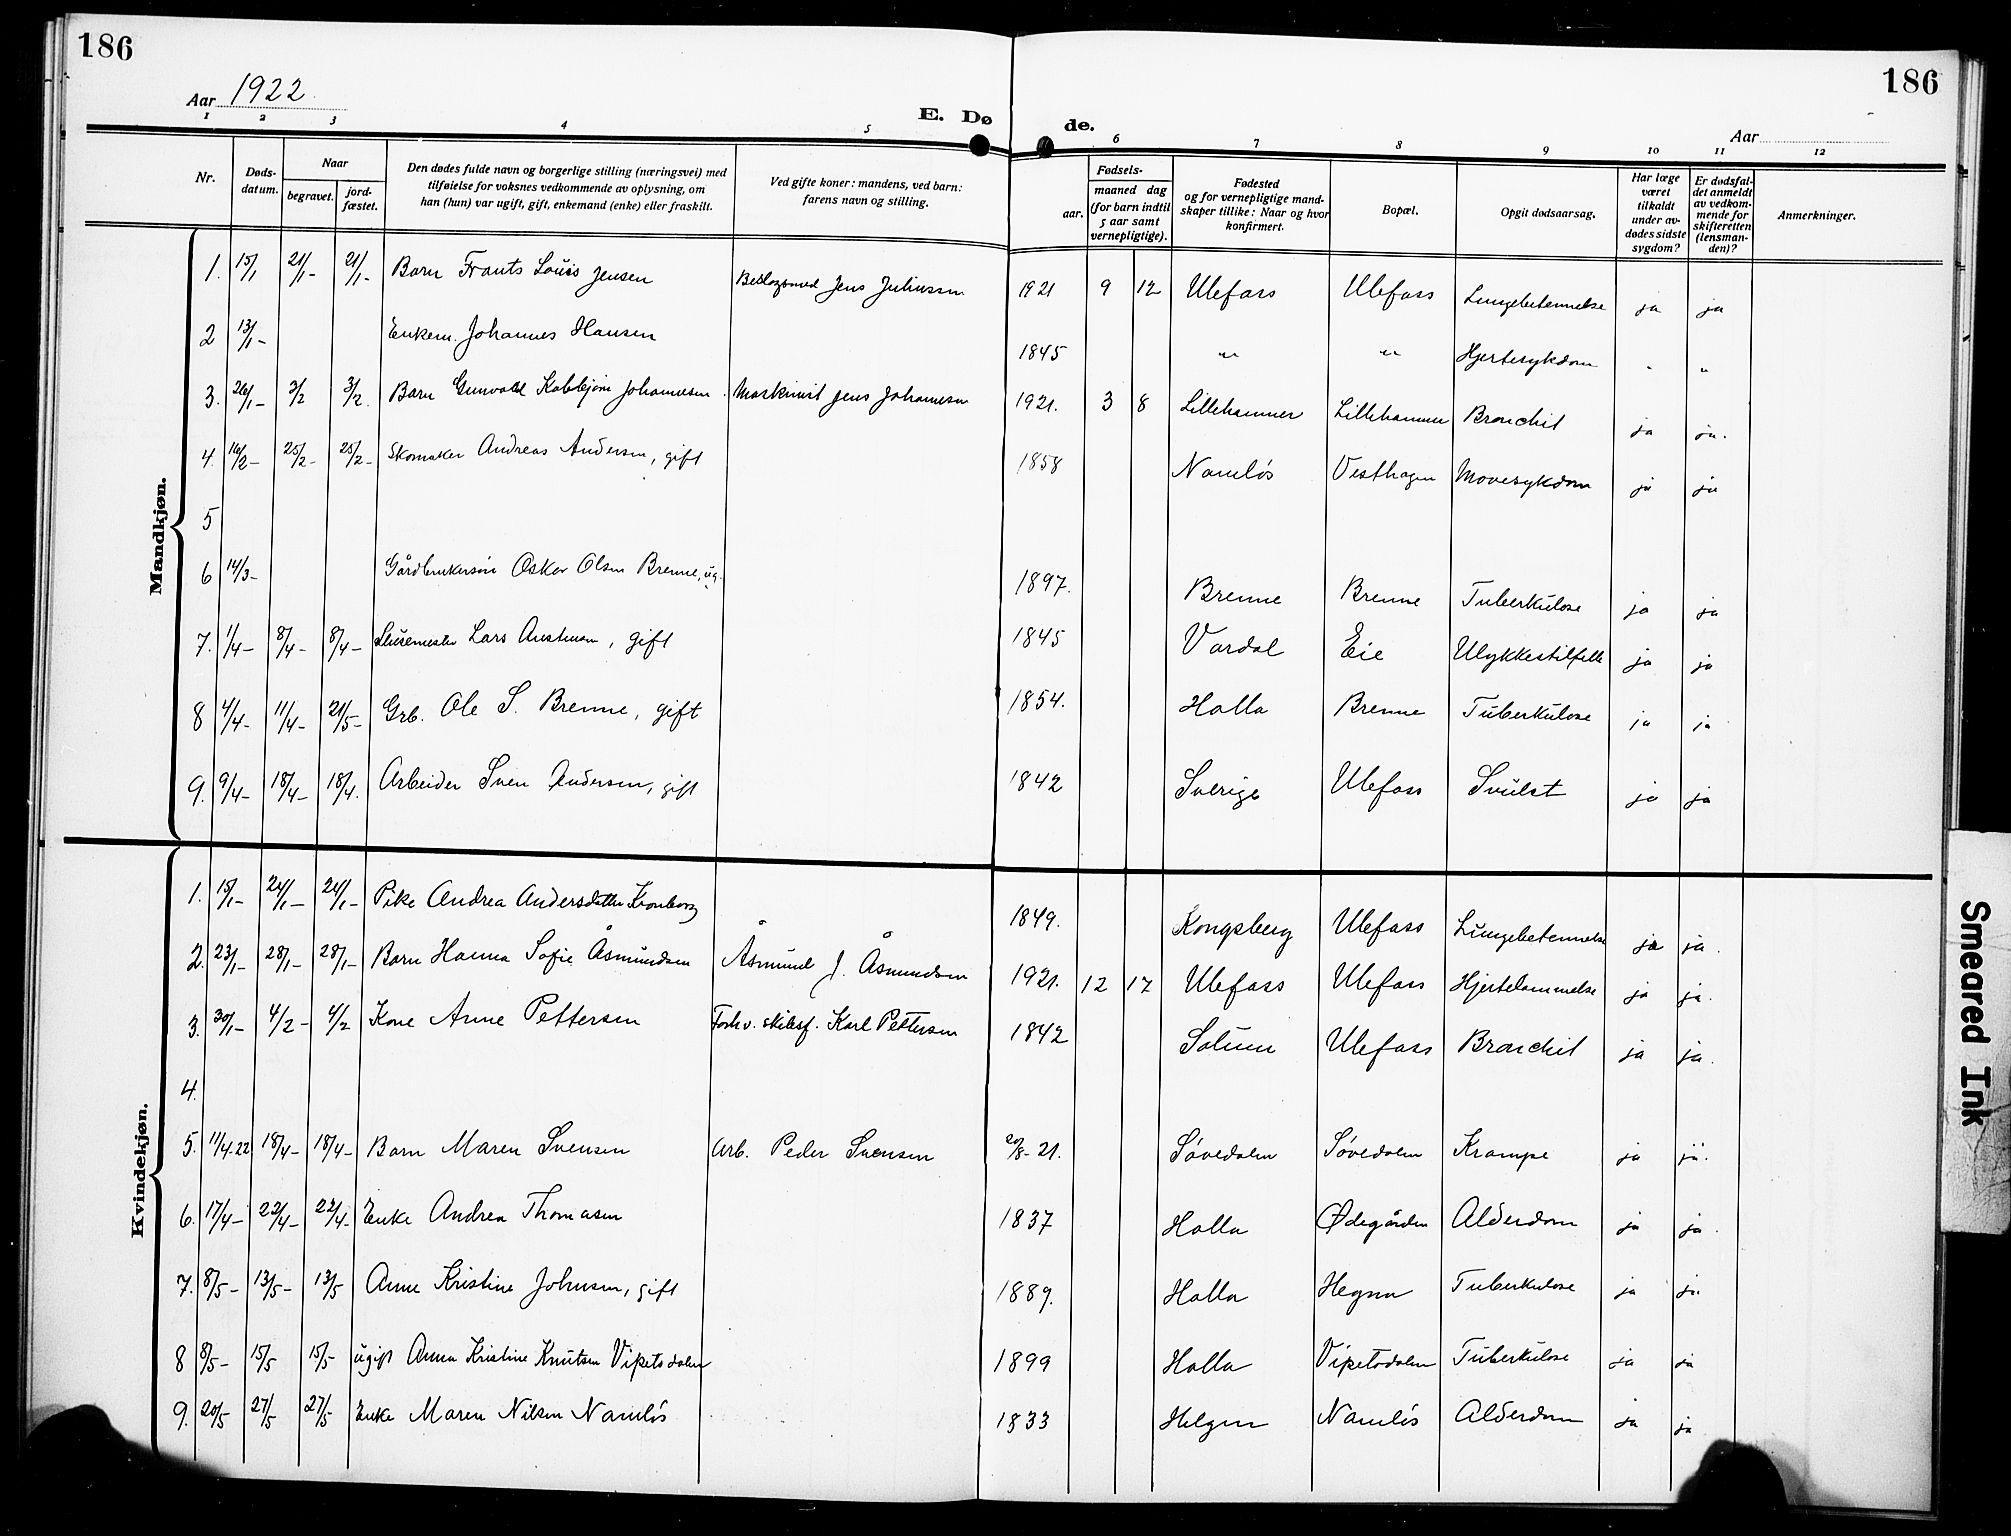 186
186
Aar 1922.
E. Døde.
Aar
1 2 3 4 5 6 7 8 9 10 11 12
Nr.
Døds-datum.
Naar
begravet.
jord-fæstet.
Den dødes fulde navn og borgerlige stilling (næringsvei) med
tilføielse for voksnes vedkommende av oplysning, om
han (hun) var ugift, gift, enkemand (enke) eller fraskilt.
Ved gifte koner: mandens, ved barn:
farens navn og stilling.
Fødsels-
aar.
maaned dag
(for barn indtil
5 aar samt
vernepligtige).
Fødested
og for vernepligtige mand-
skaper tillike: Naar og hvor
konfirmert.
Bopæl.
Opgit dødsaarsag.
Har læge
været
tilkaldt
under av-
dødes sidste
sygdom?
Er dødsfal-
det anmeldt
av vedkom-
mende for
skifteretten
(lensman-
den)?
Anmerkninger.
Mandkjøn.
1. 15/1 21/1- 21/1- Barn Frants Louis Jensen Jens Juliussen 1921 9 12 Ulefoss Ulefoss Lungebetennelse ja ja
2 13/1- Enkem. Johannes Hansen 1845 " " Hjertesykdom " "
3. 26/1- 3/2 3/2. Barn Gunvald Johannesen. Maskinist Jens Johannesen 1921. 3 8 Lillehammer Lillehammer Bronchit ja ja.
4. 16/2- 25/2- 25/2- Skomaker Andreas Andersen, gift 1858 Namløs Vesthagen Mavesykdom ja ja
5
6 14/3- Gårdbrukersøn Oskar Olsen Brenne, ug. 1897. Brenne Brenne Tuberkulose ja ja
7. 1/4- 8/4- 8/4- Slusemester Lars Austmann, gift 1845 Vardal Eie Ulykkestilfelle ja ja
8 4/4- 11/4- 21/5- Grb. Ole S. Brenne, gift 1854. Holla Brenne Tuberkulose ja ja
9. 9/4- 18/4- 18/4. Arbeider Sven Andersen, gift 1842 Sverige Ulefoss Svulst ja ja
Kvindekjøn.
1. 15/1- 24/1- 24/1- Pike Andrea Andersdatter Kronborg 1849. Kongsberg Ulefoss Lungebetennelse ja ja.
2. 23/1- 28/1- 28/1- Barn Hanna Sofie Åsmundsen Åsmund J. Åsmundsen 1921. 12 17 Ulefoss Ulefoss Hjertelammelse ja ja.
3. 30/1- 4/2- 4/2 Kone Anne Pettersen Forhv. skibsf. Karl Pettersen 1842 Solum Ulefoss Bronchit ja ja.
4.
5. 11/4-22 18/4- 18/4- Barn Maren Svensen Arb. Peder Svensen 20/8-21. Søvedalen Søvedalen Krampe ja ja.
6. 17/4- 22/4- 22/4- Enke Andrea Thomasen 1837 Holla Ødegården Alderdom ja ja.
7. 8/5- 13/5- 13/5 Anne Kristine Johnsen, gift 1889. Holla Hegna Tuberkulose ja ja
8 8/5- 15/5 15/5 ugift Anna Kristine Knutsen Vipetodalen 1899 Holla Vipetodalen Tuberkulose ja ja
9. 20/5 27/5 27/5 Enke Maren Nilsen Namløs 1833 Helgen Namløs Alderdom ja ja
Smeared Ink